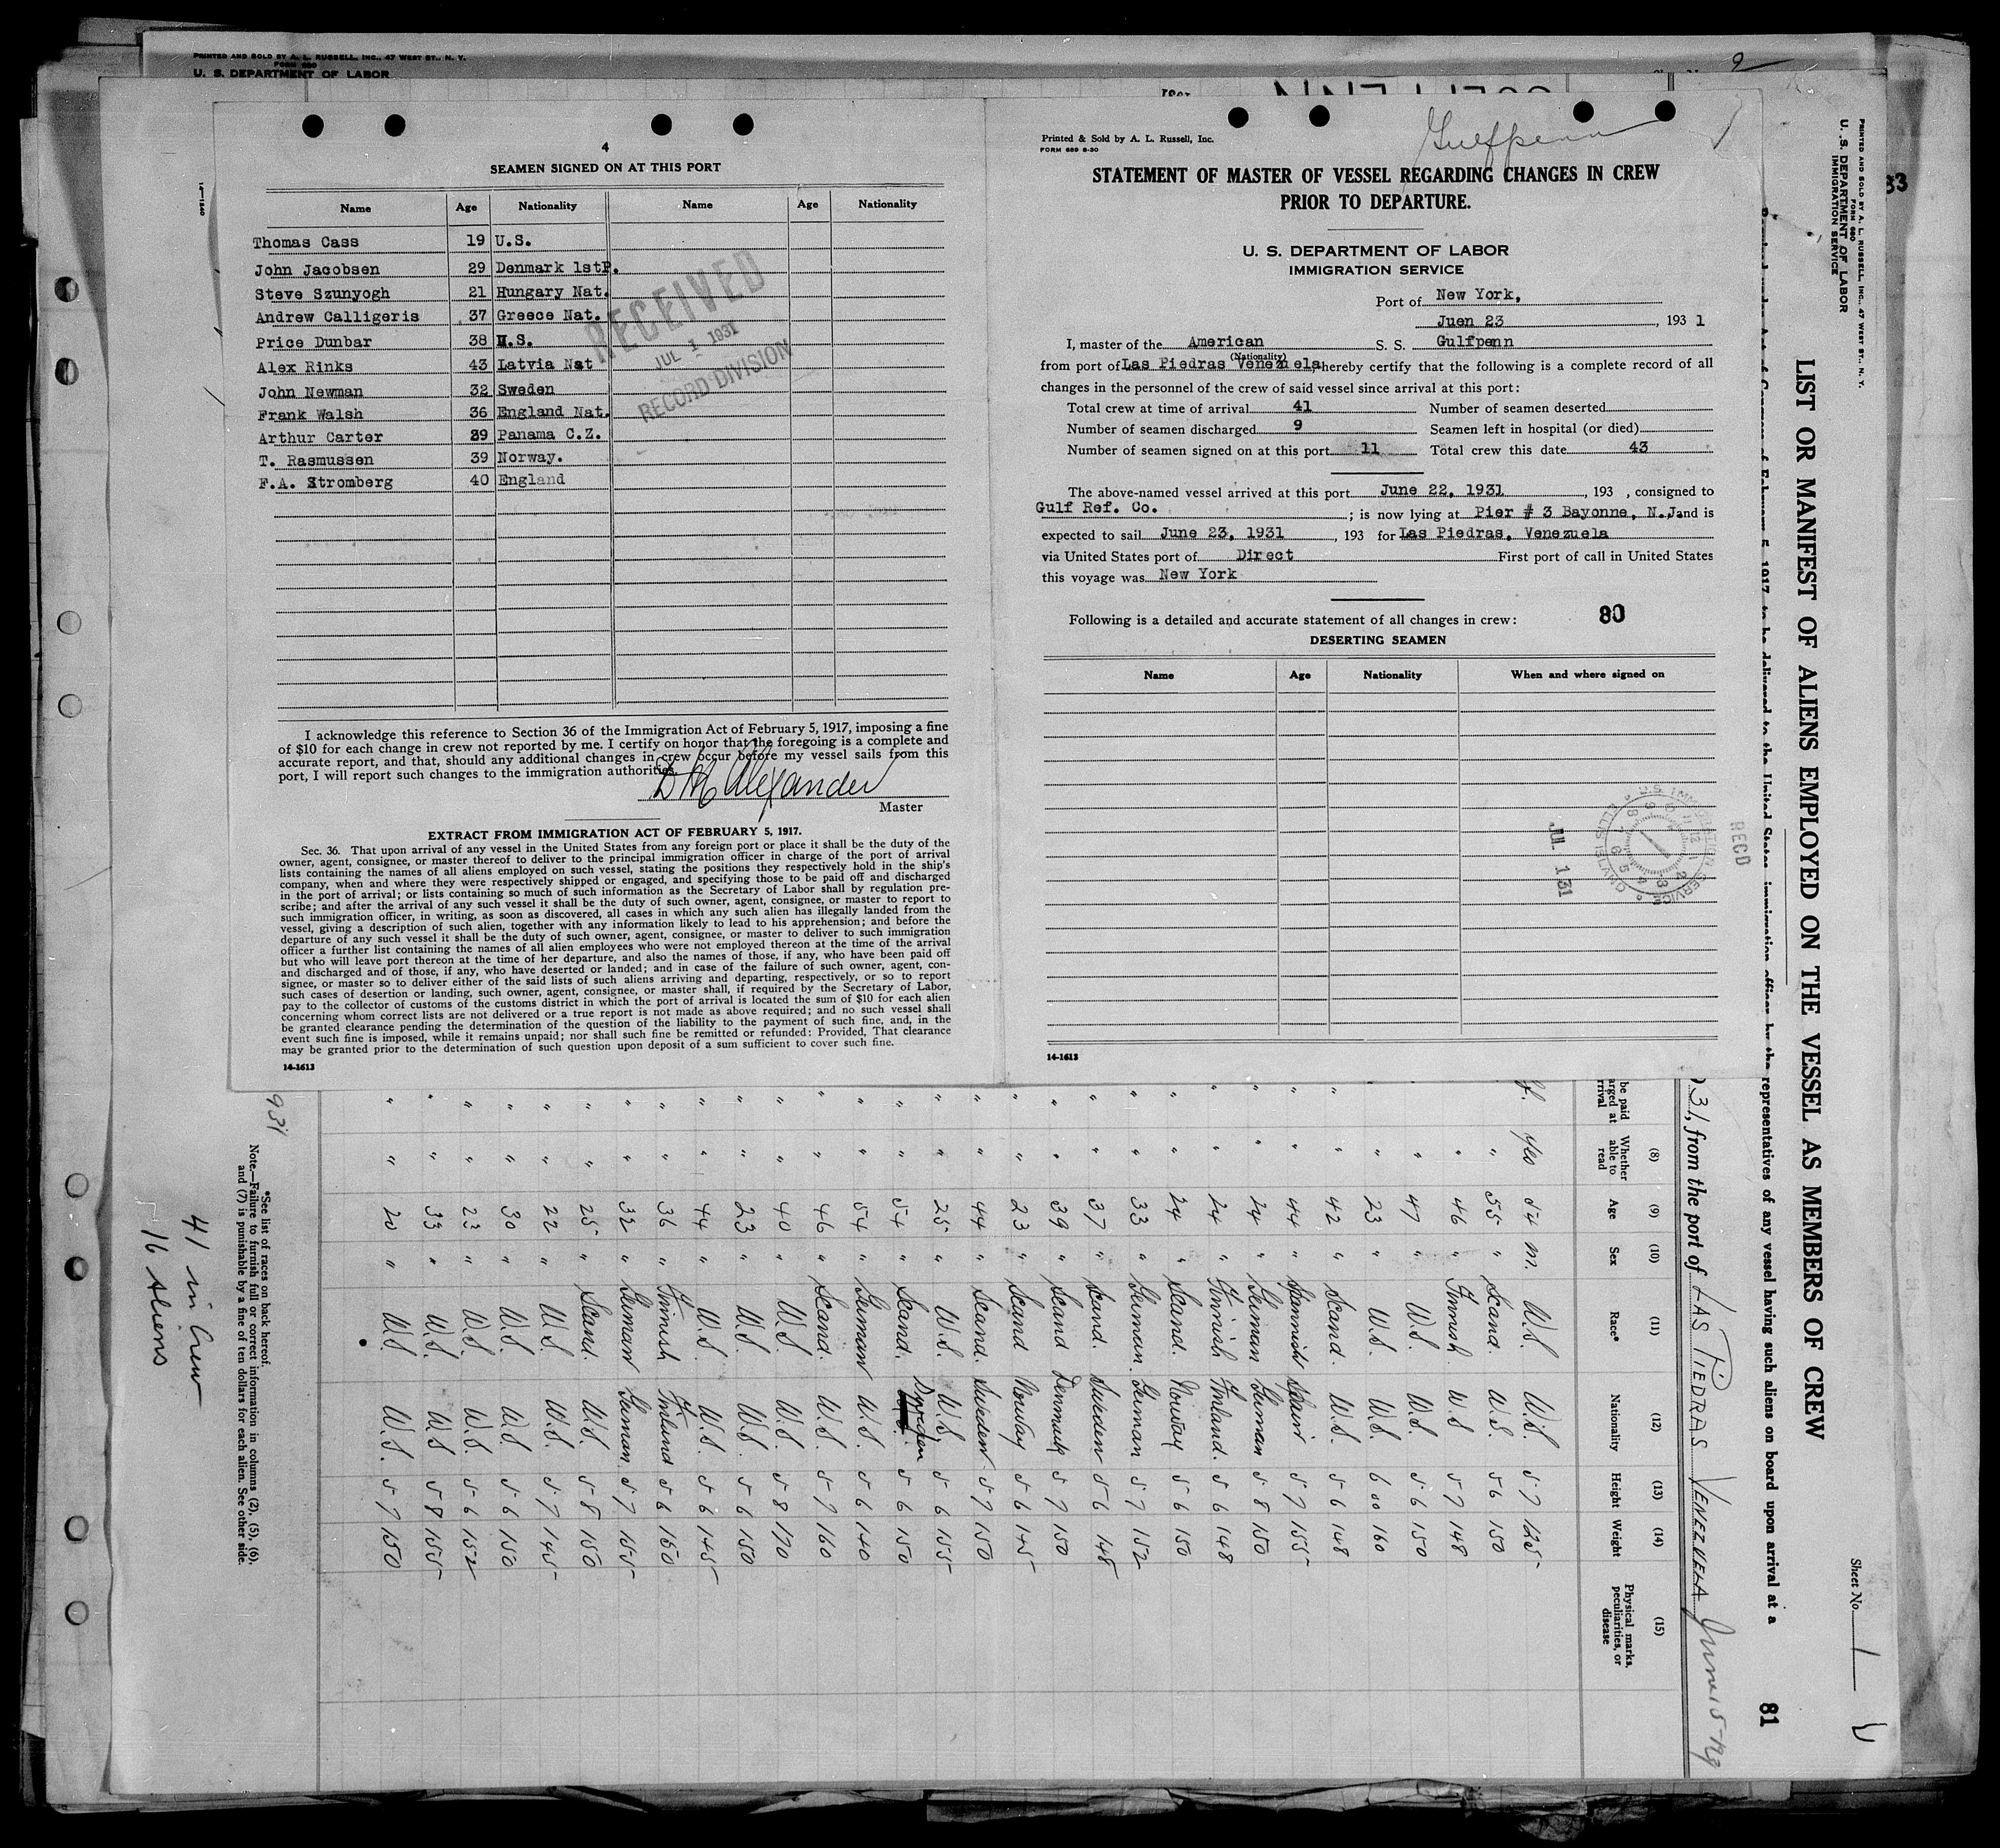 PRINTED AND SOLD BY A. L. RUSSELL, INC., 47 WEST ST., N. Y.
FORM 680
U. S. DEPARTMENT OF LABOR
4
SEAMEN SIGNED ON AT THIS PORT
Name Age Nationality Name Age Nationality
Thomas Cass 19 U.S.
John Jacobsen 29 Denmark 1stP.
Steve Szunyogh 21 Hungary Nat.
Andrew Calligeris 37 Greece Nat.
Price Dunbar 38 U.S.
Alex Rinks 43 Latvia Nat
John Newman 32 Sweden
Frank Walsh 36 England Nat.
Arthur Carter 39 Panama C.Z.
T. Rasmussen 39 Norway.
F.A. Stromberg 40 England
RECEIVED
JUL 1 1931
RECORD DIVISION
I acknowledge this reference to Section 36 of the Immigration Act of February 5, 1917, imposing a fine
of $10 for each change in crew not reported by me. I certify on honor that the foregoing is a complete and
accurate report, and that, should any additional changes in crew occur before my vessel sails from this
port, I will report such changes to the immigration authorities.
Alexander
Master
EXTRACT FROM IMMIGRATION ACT OF FEBRUARY 5, 1917.
Sec. 36. That upon arrival of any vessel in the United States from any foreign port or place it shall be the duty of the
owner, agent, consignee, or master thereof to deliver to the principal immigration officer in charge of the port of arrival
lists containing the names of all aliens employed on such vessel, stating the positions they respectively hold in the ship's
company, when and where they were respectively shipped or engaged, and specifying those to be paid off and discharged
in the port of arrival; or lists containing so much of such information as the Secretary of Labor shall by regulation pre-
scribe; and after the arrival of any such vessel it shall be the duty of such owner, agent, consignee, or master to report to
such immigration officer, in writing, as soon as discovered, all cases in which any such alien has illegally landed from the
vessel, giving a description of such alien, together with any information likely to lead to his apprehension; and before the
departure of any such vessel it shall be the duty of such owner, agent, consignee, or master to deliver to such immigration
officer a further list containing the names of all alien employees who were not employed thereon at the time of the arrival
but who will leave port thereon at the time of her departure, and also the names of those, if any, who have been paid off
and discharged and of those, if any, who have deserted or landed; and in case of the failure of such owner, agent, con-
signee, or master so to deliver either of the said lists of such aliens arriving and departing, respectively, or so to report
such cases of desertion or landing, such owner, agent, consignee, or master shall, if required by the Secretary of Labor,
pay to the collector of customs of the customs district in which the port of arrival is located the sum of $10 for each alien
concerning whom correct lists are not delivered or a true report is not made as above required; and no such vessel shall
be granted clearance pending the determination of the question of the liability to the payment of such fine, and, in the
event such fine is imposed, while it remains unpaid; nor shall such fine be remitted or refunded: Provided, That clearance
may be granted prior to the determination of such question upon deposit of a sum sufficient to cover such fine.
14-1613
Gulfpenn
Printed & Sold by A. L. Russell, Inc.
FORM 689 8-30
STATEMENT OF MASTER OF VESSEL REGARDING CHANGES IN CREW
PRIOR TO DEPARTURE.
U. S. DEPARTMENT OF LABOR
IMMIGRATION SERVICE
Port of New York,
Juen 23, 1931
I, master of the American S. S. Gulfpenn
(Nationality)
from port of Las Piedras Venezuela, hereby certify that the following is a complete record of all
changes in the personnel of the crew of said vessel since arrival at this port:
Total crew at time of arrival 41 Number of seamen deserted
Number of seamen discharged 9 Seamen left in hospital (or died)
Number of seamen signed on at this port 11 Total crew this date 43
The above-named vessel arrived at this port June 22, 1931, 193 , consigned to
Gulf Ref. Co. ; is now lying at Pier # 3 Bayonne, N.J. and is
expected to sail June 23, 1931, 193 for Las Piedras, Venezuela
via United States port of Direct First port of call in United States
this voyage was New York
Following is a detailed and accurate statement of all changes in crew: 80
DESERTING SEAMEN
Name Age Nationality When and where signed on
JUL 1 31
U.S. IMMIGRATION SERVICE
ELLIS ISLAND
RECD
14-1613
PRINTED AND SOLD BY A. L. RUSSELL, INC., 47 WEST ST., N. Y.
FORM 680
U. S. DEPARTMENT OF LABOR
IMMIGRATION SERVICE
83
Sheet No. 1
LIST OR MANIFEST OF ALIENS EMPLOYED ON THE VESSEL AS MEMBERS OF CREW
representatives of any vessel having such aliens on board upon arrival at a
81
31, from the port of LAS PIEDRAS VENEZUELA June 15-
(8) (9) (10) (11) (12) (13) (14) (15)
Whether able to read Age Sex Race* Nationality Height Weight Physical marks, peculiarities, or disease
yes 54 m. U.S. U.S. 5 7 125
" 55 " Scand. U.S. 5 6 150
" 46 " Finnish U.S 5 7 148
" 47 " U.S. U.S. 5 6 150
" 23 " U.S. U.S. 6 00 160
" 42 " Scand. U.S. 5 6 148
" 44 " Spannish Spain 5 7 155
" 24 " German German 5 8 150
" 24 " Finnish Finland. 5 6 148
" 24 " Scand. Norway 5 6 150
" 33 " German German 5 7 152
" 37 " Scand. Sweden 5 6 148
" 39 " Scand Denmark 5 7 150
" 23 " Scand Norway 5 6 145
" 44 " Scand. Sweden 5 7 150
" 25 " U.S. U.S. 5 6 155
" 54 " Scand. Sweden 5 6 150
" 54 " German U.S. 5 6 140
" 46 " Scand. U.S. 5 7 160
" 40 " U.S. U.S. 5 8 170
" 23 " U.S. U.S. 5 6 150
" 44 " U.S. U.S. 5 6 145
" 36 " Finnish Finland 5 6 150
" 32 " German German. 5 7 155
" 25 " Scand. U.S. 5 8 150
" 22 " U.S. U.S. 5 7 145
" 30 " U.S. U.S. 5 6 150
" 23 " U.S. U.S. 5 6 152
" 33 " U.S. U.S 5 8 155
" 20 " U.S. U.S. 5 7 150
*See list of races on back hereof.
Note.—Failure to furnish full or correct information in columns (2), (5), (6),
and (7) is punishable by a fine of ten dollars for each alien. See other side.
931
41 in Crew
16 Aliens